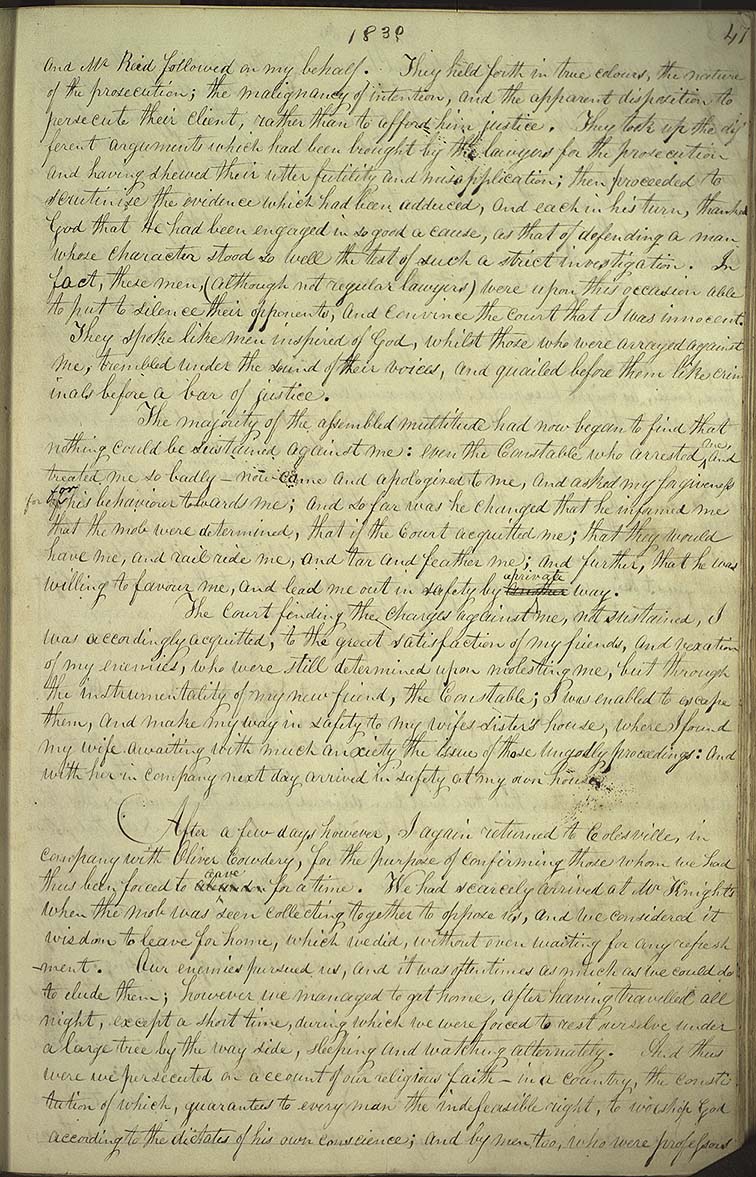 1830
47
and Mr Reid followed on my behalf. They held forth in true colours, the nature
of the prosecution; the malignancy of intention, and the apparent disposition to
persecute their client, rather than to afford him justice. They took up the dif
ferent arguments which had been brought by the lawyers for the prosecution
and having shewed their utter futility and misapplication; then proceeded to
scrutinise the evidence which had been adduced, and each in his turn, thanked
God that he had been engaged in so good a cause, as that of defending a man
whose character stood so well the test of such a strict investigation. In
fact, these men, (although not regular lawyers) were upon this occasion able
to put to silence their opponents, and convince the court that I was innocent.
They spoke like men inspired of God, whilst those who were arrayed against
me, trembled under the sound of their voices, and quailed before them like crim
inals before a bar of justice.
The majority of the assembled multitude had now began to find that
nothing could be sustained against me: even the Constable who arrested me, and
treated me so badly — now came and apologised to me, and asked my forgiveness
for his behaviour towards me; and so far was he changed that he informed me
that the mob were determined, that if the Court acquitted me; that they would
have me, and rail ride me, and tar and feather me; and further, that he was
willing to favour me, and lead me out in safety by a private way.
The Court finding the charges against me, not sustained, I
was accordingly acquitted, to the great satisfaction of my friends, and vexation
of my enemies, who were still determined upon molesting me, but through
the instrumentality of my new friend, the Constable; I was enabled to escape
them, and make my way in safety to my wifes sister's house, where I found
my wife awaiting with much anxiety the issue of those ungodly proceedings: and
with her in company next day arrived in safety at my own house.
After a few days however, I again returned to Colesville, in
company with Oliver Cowdery, for the purpose of confirming those whom we had
thus been forced to leave for a time. We had scarcely arrived at Mr Knight's
when the mob was seen collecting together to oppose us, and we considered it
wisdom to leave for home, which we did, without even waiting for any refresh
-ment. Our enemies pursued us, and it was oftentimes as much as we could do
to elude them; however we managed to get home, after having travelled all
night, except a short time, during which we were forced to rest ourselve under
a large tree by the way side, sleeping and watching alternately. And thus
were we persecuted on account of our religious faith — in a country, the consti
tution of which, guarantees to every man the indefeasible right, to worship God
according to the dictates of his own conscience; and by men, too, who were professors